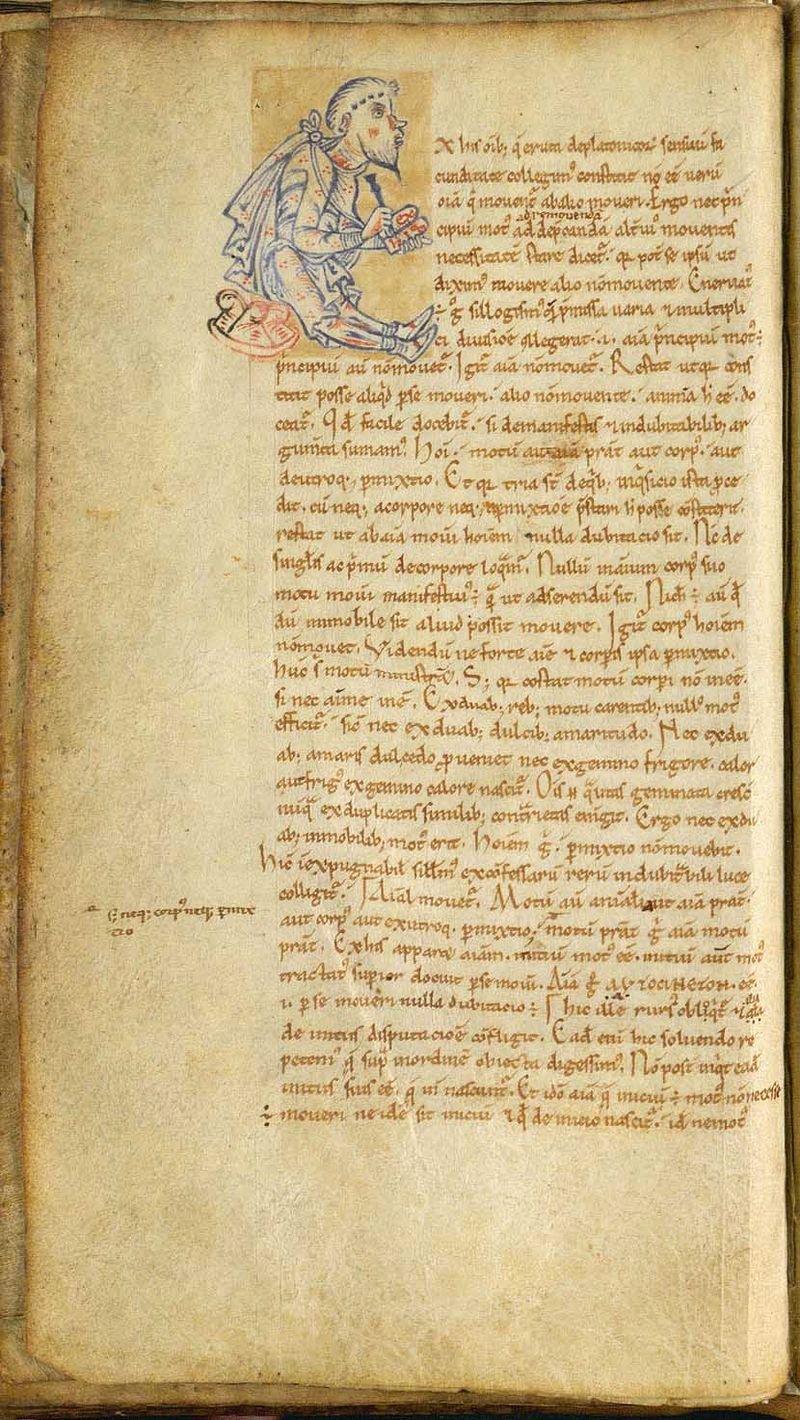 x his oīb; q̄ eruta deplatonicoꝝ sensuū fe
cunditate collegim⁹ constitit nō eē verū
oīa q̄ moventˢ abalio moveri. Ergo nec p̄n
cipiū mot⁹ ad depcandā altiu⁹ moventis
adremovendā
necessitatē stare dicet. qꝛ pot se ipsū ut
dixim⁹ movere alio nōmovente. Enervat⁹
÷ g̊ sillogism⁹ q̄ p̄missa varia ⁊ multipli
ci divisiōe collegerat .i. aīa p̄ncipiū mot⁹ ÷
p̄ncipiū aū nōmovet. Igit aīa nōmovet. Restat utqꝛ cons
titit posse aliq̄d ꝑse moveri. alio nōmovente. animā h̄ eē. do
ceat. Qd̄ facile docebit. si demanifestis ⁊ indubitabilib; ar
gumenta sumam⁹. Hoī motū aut aīa p̄stāt aut corp⁹. aut
deutroq; ꝑmixtio. Et qꝛ tria st̄ deq̄b; inq̄sicio ista ꝓce
dit. cū neq; acorpore neq; aꝑmixtiōe p̄stari h̄ posse cōstiterit.
restat ut abaīa moveri hoīem nulla dubitacio sit. Nc̄ de
singlis ac p̄mū decorpore loqm̄. Nullū inanimum corp⁹ suo
motu moveri manifestiu⁹ ÷ q̄ ut adserendū sit. Nichil ÷ aū qd̄
dū immobile sit aliud possit movere. Igit corp⁹ hoīem
nōmovet. Videndū ne forte aīe ⁊ corporis ipsa ꝑmixtio.
huic s̄ motū ministret. S; qꝛ cōstat motū corpori nō ineē.
si nec aīme inē. Exduab; reb; motu carentib; null⁹ mot⁹
efficit. sic̄ nec exduab; dulcib; amaritudo. Nec exdu
ab; amaris dulcedo ꝓveniet nec exgemino frigore. calor
aut frig⁹ exgemino calore nascit. Oīs n̄ q̄litas geminata cresc̄
nūq̄ exduplicatis similib; cont̄rietas em̄git. Ergo nec exdu
ab; inmobilib; mot⁹ erit. Hoīem g̊. ꝑmixtio nōmovebit.
Hic īexpugnabil sillm⁹ exconfessarū rerū indubitabili luce
colligit. Aīal movet. Motū aū animali aut aīa p̄stat.
aut corp⁹ aut exutroq; ꝑmixtio. motū p̄stat g̊ aīa motū
p̄stat. Exhis apparet aīam. initiū mot⁹ eē. initiū aut mot⁹
tractat⁹ superior docuit ꝑse moveri. Aīa g̊ AYTOCINETON. eē.
.i. ꝑ se moveri nulla dubitacio ÷ Hic ille rurs⁹ obloqt
de initiis disputaciōe cōfligit. Eadē enī hic solvendo re
petem⁹ q̄ sup̄ inordinē obiecta digessim⁹. Nō post inqt eadē
initiis suis eē. q̄ in nascunt. Et iđo aīa q̄ iniciū ÷ mot⁹ nō necesse
÷ moveri ne idē sit iniciū ⁊ qd̄ de inicio nascit. id ne mot⁹
s; neq; corp⁹ neq; ꝑmix
cio